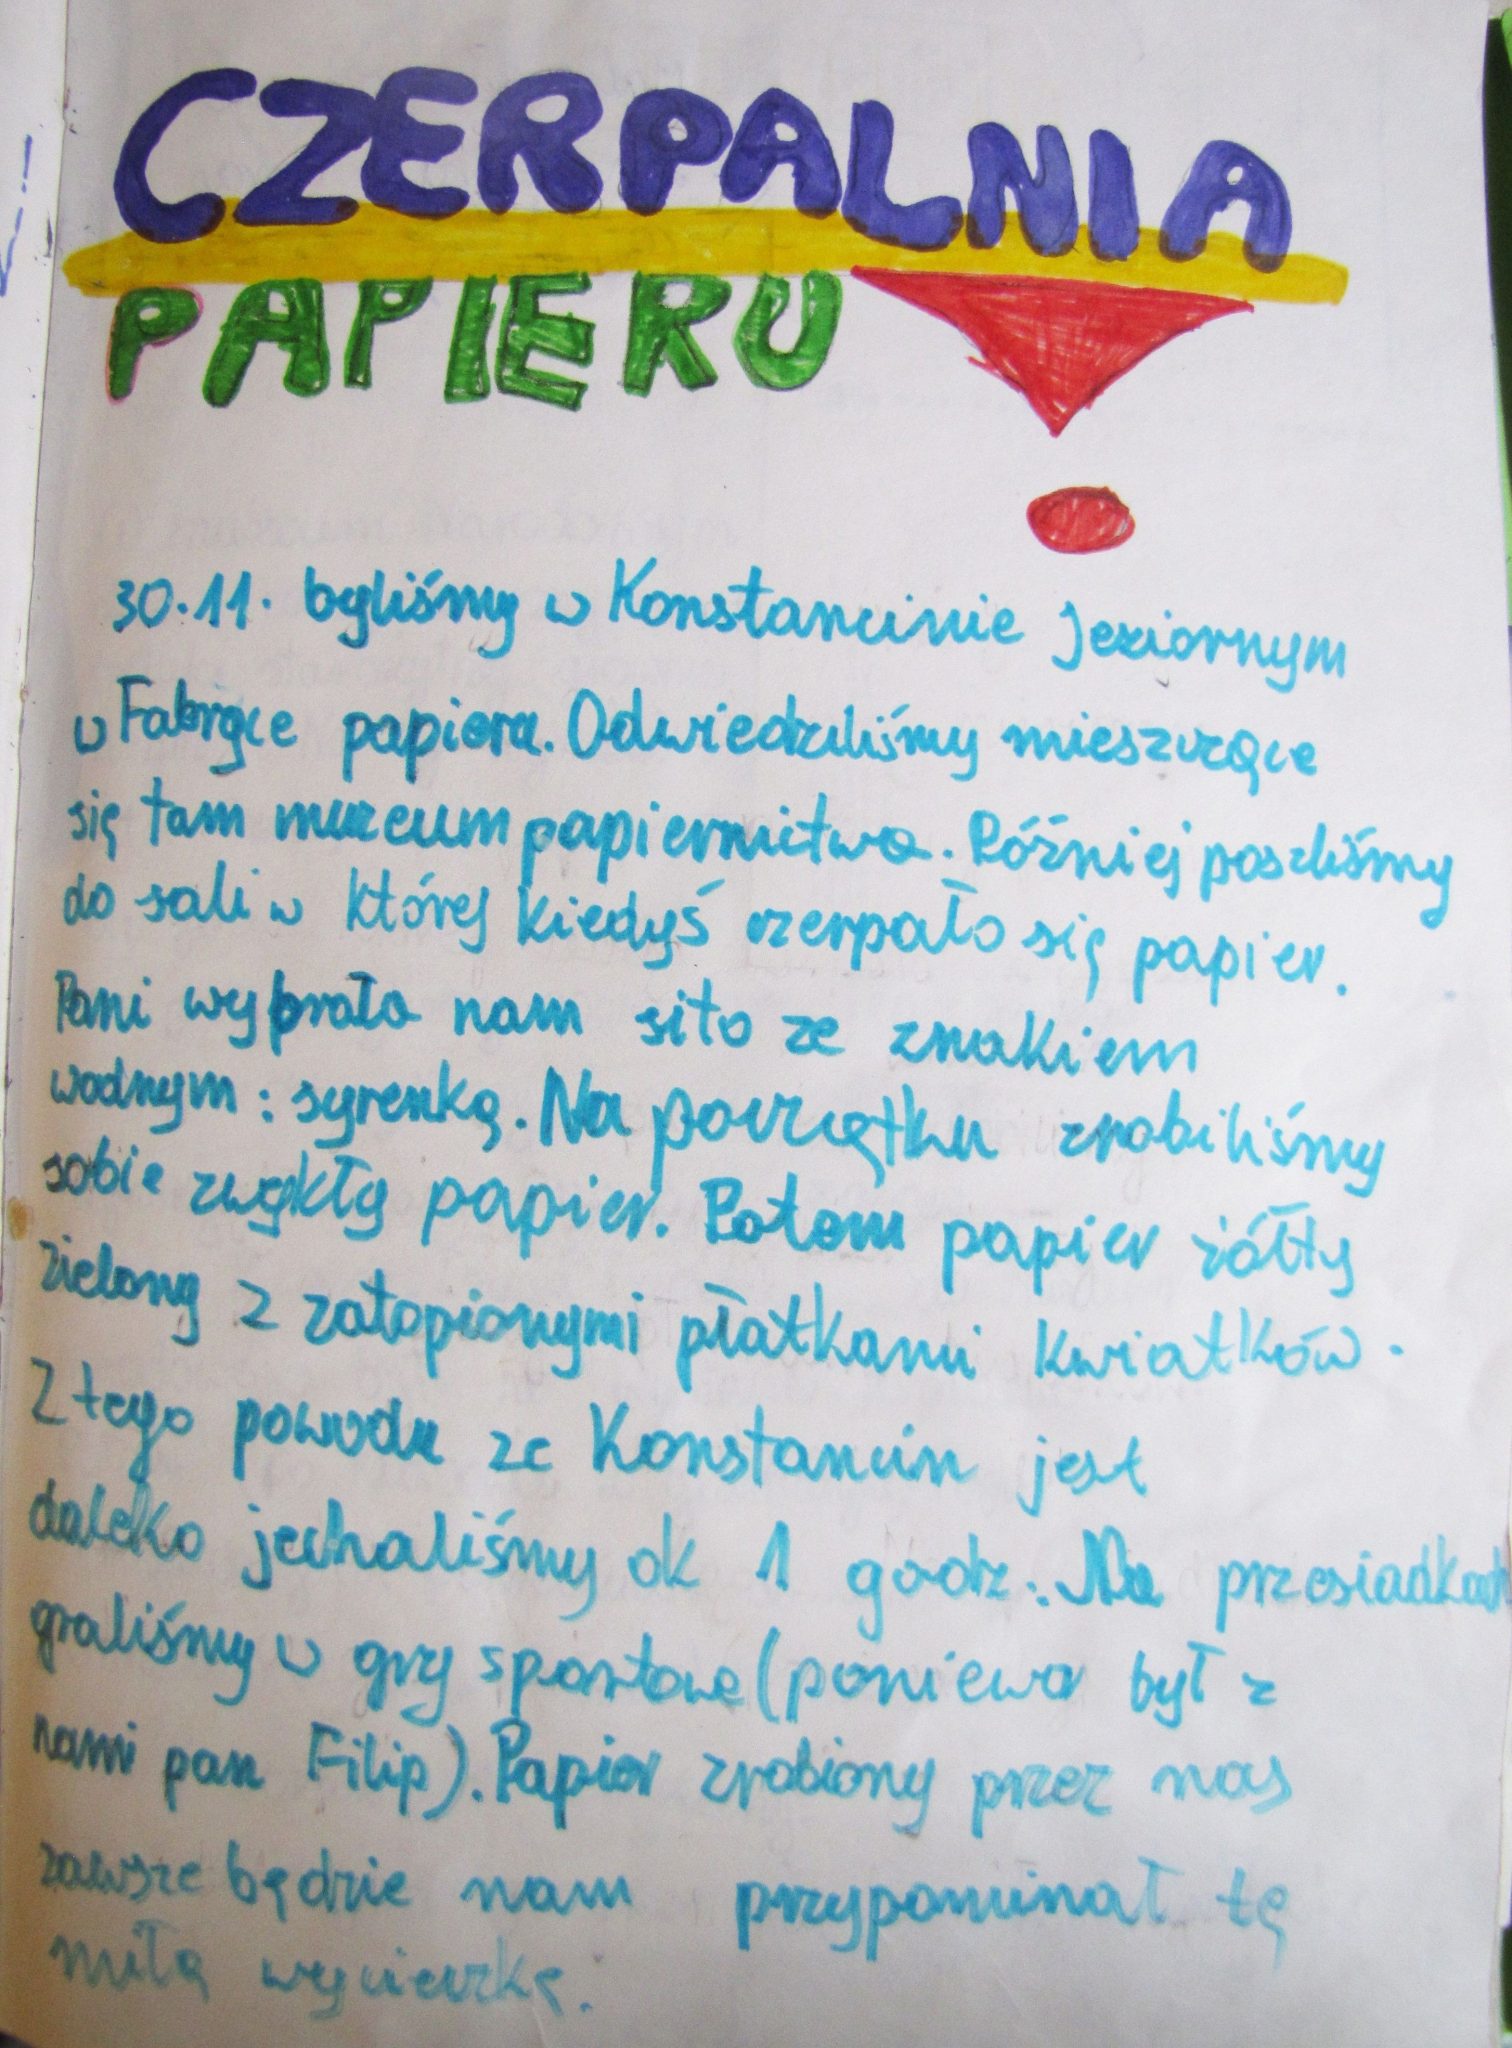 CZERPALNIA
PAPIERU
30.11. byliśmy w Konstancinie Jeziornym
w Fabryce papiera. Odwiedziliśmy mieszczące
się tam muzeum papiernictwa. Później poszliśmy
do sali w której kiedyś czerpało się papier.
Pani wybrała nam sito ze znakiem
wodnym: syrenką. Na początku zrobiliśmy
sobie zwykły papier. Potem papier żółty
zielony z zatopionymi płatkami kwiatków.
Z tego powodu ze Konstancin jest
daleko jechaliśmy ok 1 godz. Na przesiadkach
graliśmy w gry sportowe (poniewa był z
nami pan Filip). Papier zrobiony przez nas
zawsze będzie nam przypominał tę
miłą wycieczkę.